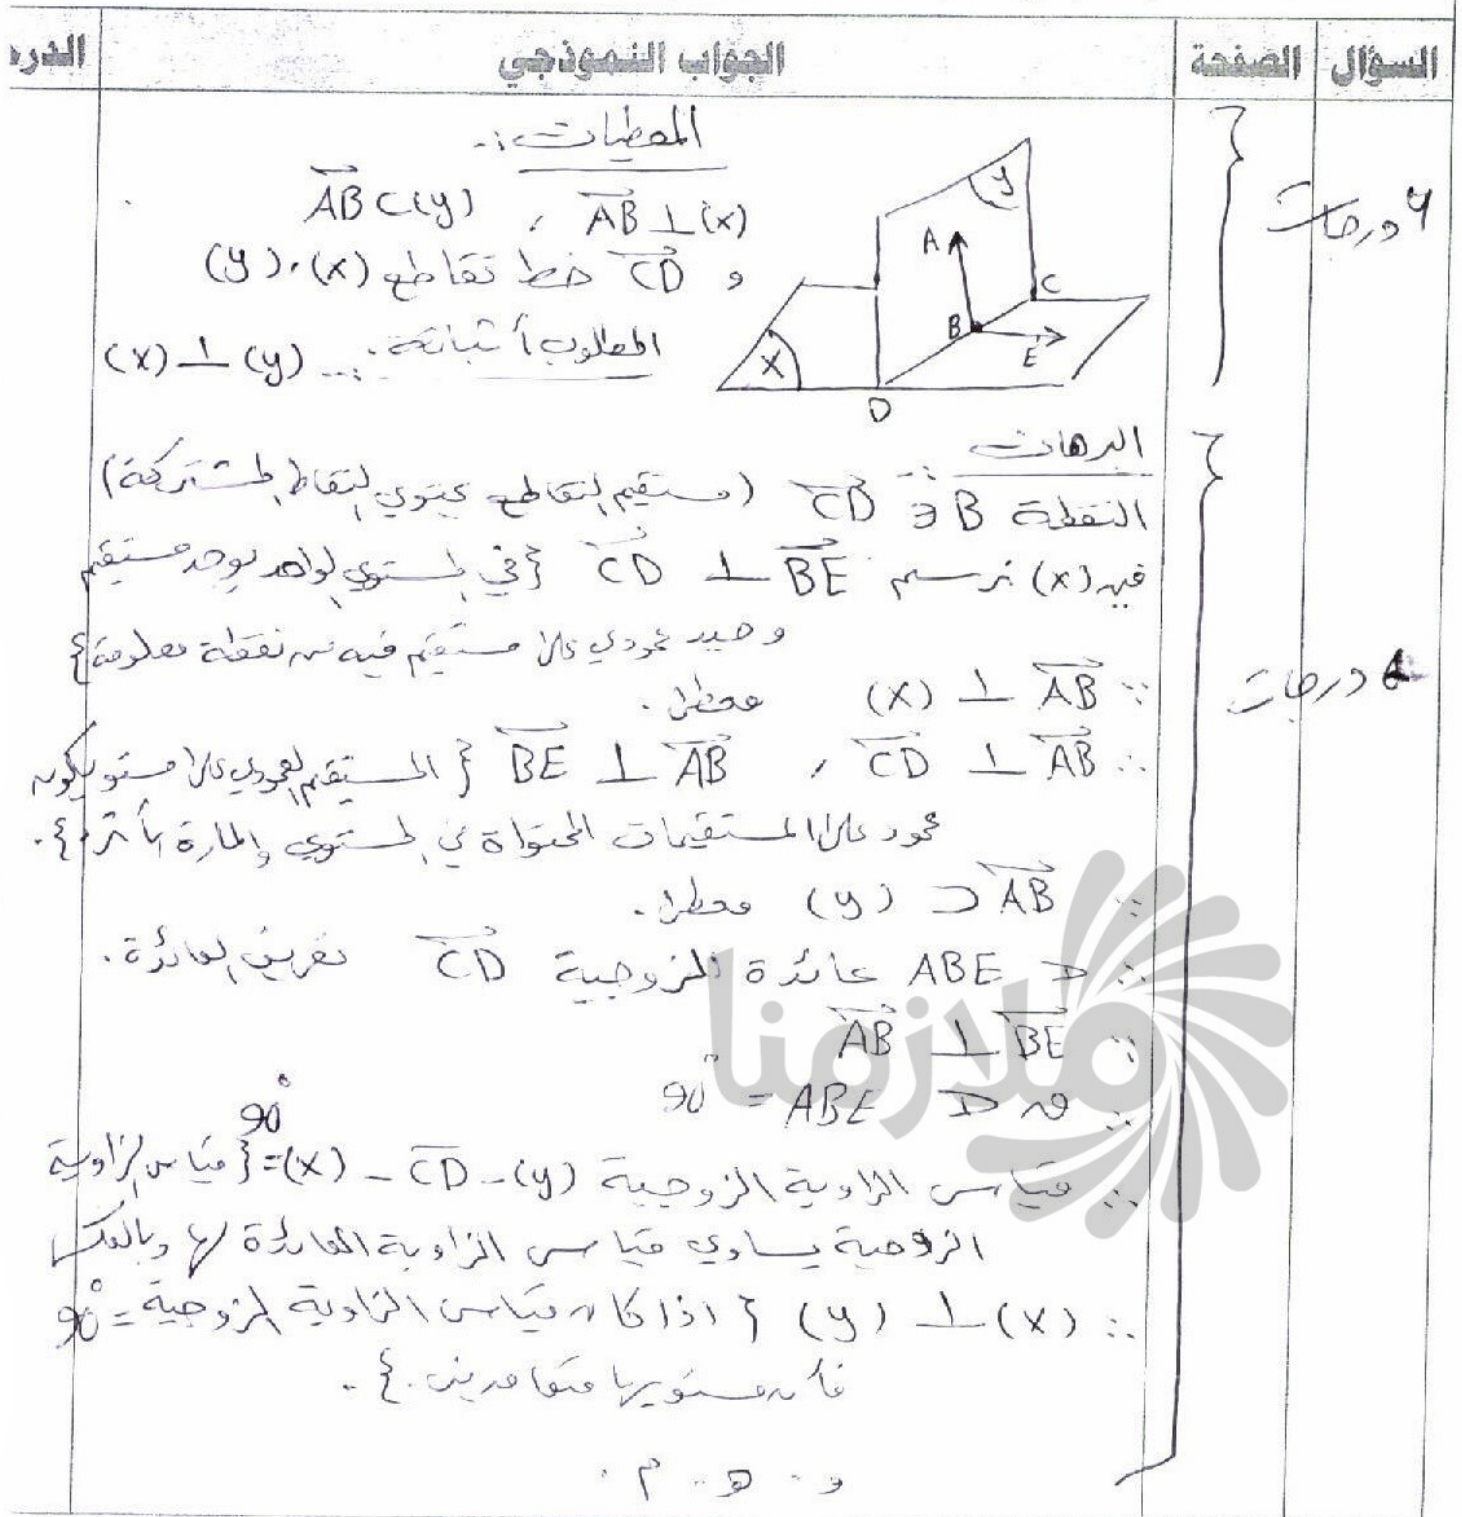 السؤال الصفحة الجواب النموذجي الدرجـ
المعطيات :-
AB ⊥ (x) ، AB ⊂ (y)
و CD خط تقاطع (x)، (y)
المطلوب أثباته :- (y) ⊥ (x)
y
A
C
B
E
X
D
4 درجات
البرهان :-
النقطة B ∈ CD (مستقيم التقاطع يحتوي النقاط المشتركة)
في (x) نرسم BE ⊥ CD {في المستوي الواحد يوجد مستقيم
وحيد عمودي على مستقيم فيه من نقطة معلومة}
∵ AB ⊥ (x) معطى .
∴ AB ⊥ CD ، AB ⊥ BE {المستقيم العمودي على مستو يكون
عمود على المستقيمات المحتواة في المستوي والمارة بأثره} .
درجات
∵ AB ⊂ (y) معطى .
∴ ∢ ABE عائدة الزوجية CD تعريف العائدة .
∵ BE ⊥ AB
∴ ق ∢ ABE = 90°
∴ قياس الزاوية الزوجية (y) - CD - (x) = 90° {قياس الزاوية
الزوجية يساوي قياس الزاوية العائدة لها وبالعكس
∴ (x) ⊥ (y) {اذا كان قياس الزاوية الزوجية = 90°
فأن مستوييها متعامدين .} .
و . هـ . م .
ملازمنا